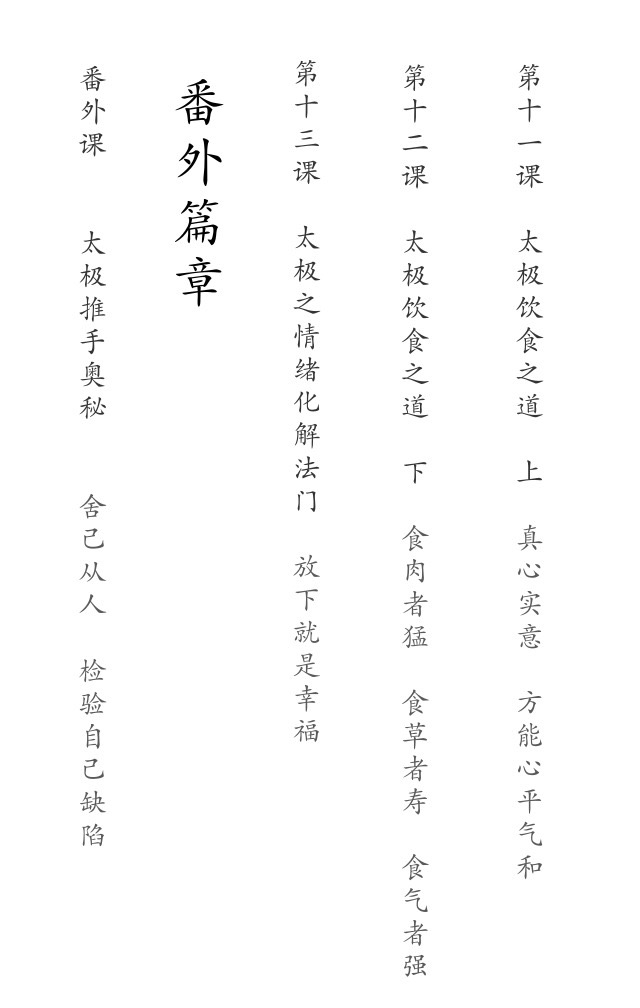 第十一课 太极饮食之道 上 真心实意 方能心平气和
第十二课 太极饮食之道 下 食肉者猛 食草者寿 食气者强
第十三课 太极之情绪化解法门 放下就是幸福
番外篇章
番外课 太极推手奥秘 舍己从人 检验自己缺陷